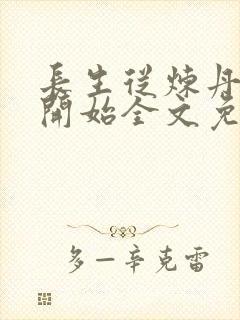 長生從煉丹
開始全文免
多一辛克雷